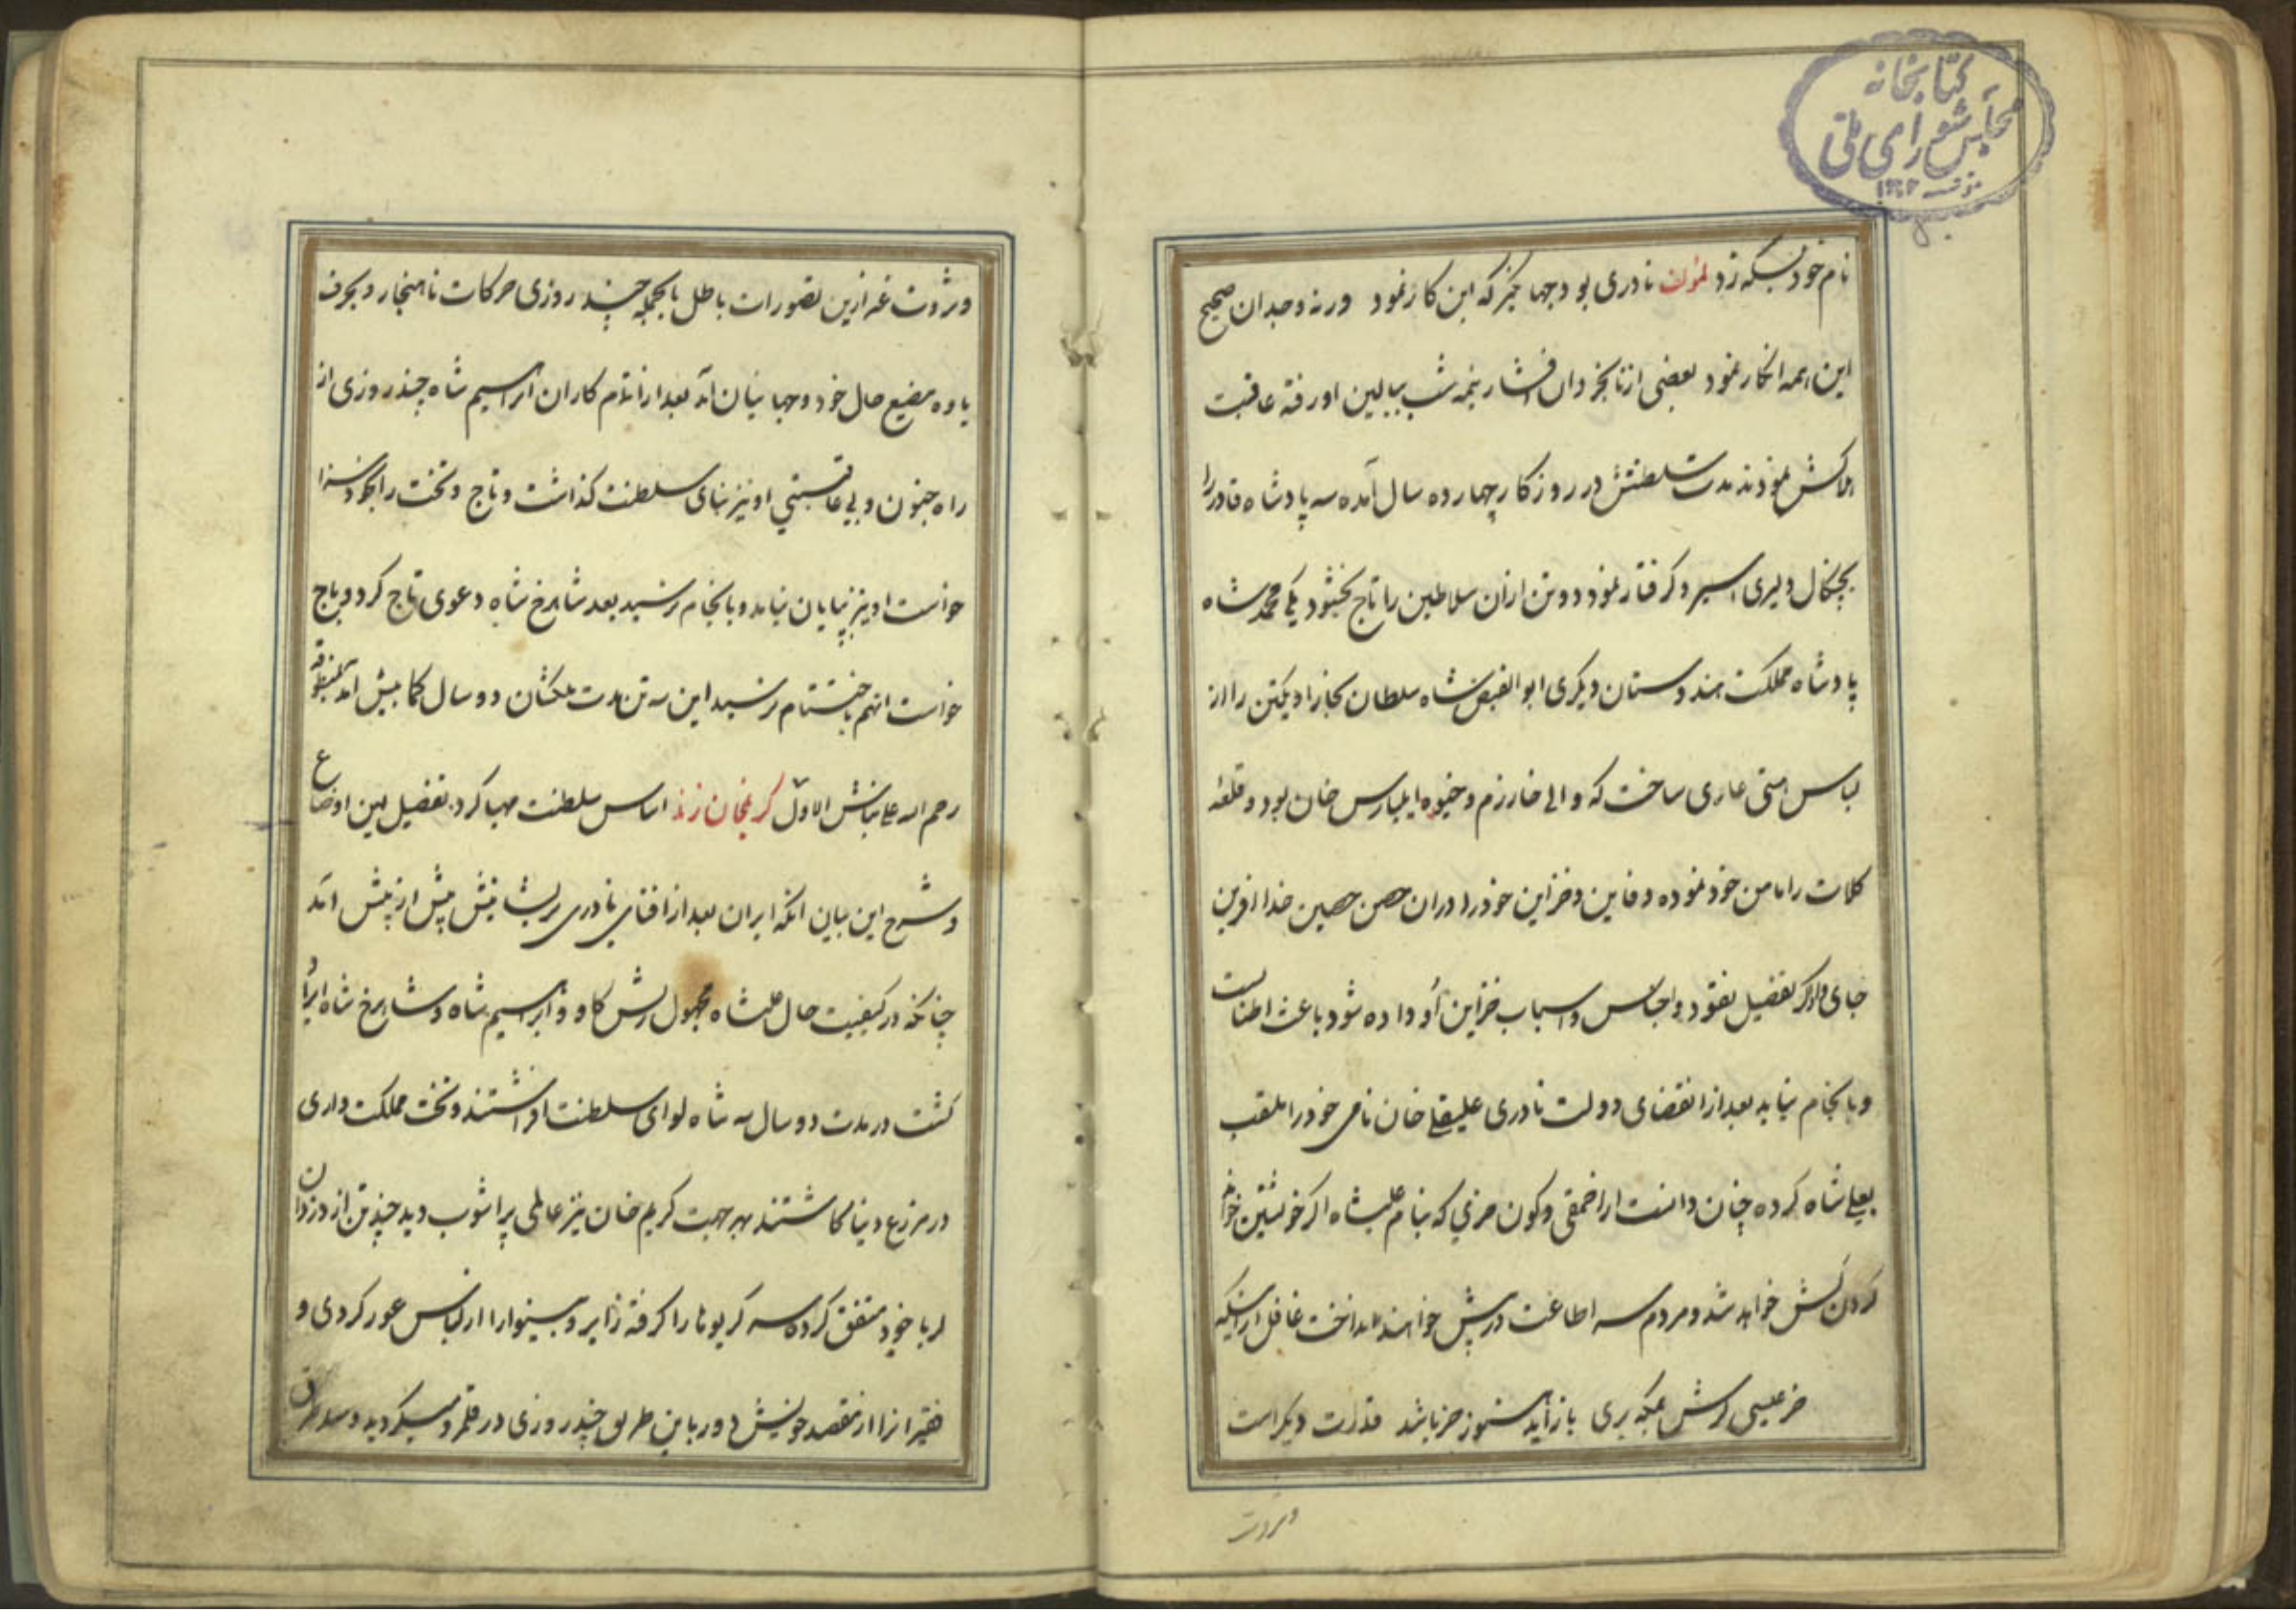 کتابخانه
مجلس شورای ملی
نام خود بسکه زد لمؤلفه نادری بود جهانگیر که این کار نمود ورنه وجدان صحیح
این همه انکار نمود بعضی از نابخردان افشار نیمه شب ببالین او رفته عاقبت
هلاکش نمودند مدت سلطنتش در روزکار چهارده سال آمده سه پادشاه قادر را
بچنکال دلیری اسیر و کرفتار نمود دو تن ازان سلاطین را تاج بخشود یکی محمد شاه
پادشاه مملکت هندوستان دیکری ابو الفیض شاه سلطان بخارا و یکتن را از
لباس هستی عاری ساخت که والی خارزم و خیوه ایلبارس خان بود و قلعه
کلات را مامن خود نموده دفاین و خزاین خود را دران حصن حصین خدا آفرین
جای داد اکر تفضیل نقود و اجناس و اسباب خزاین او داده شود باعث اطنابست
و بانجام نیاید بعد از انقضای دولت نادری علیقلی خان نامی خود را ملقب
بعلی شاه کرده چنان دانست از احمقی و کون خری که بنام علیشاه اکر خویشتن خواند
کردن کش خواهد شد و مردم سه اطاعت در پیش خواهند انداخت غافل از اینکه
خر عیسی کرش بمکه بری باز آید هنوز خر باشد قدرت دیکر است
وثروت
وثروت غیر ازین تصورات باطل بالجمله چند روزی حرکات ناهنجار و بحرف
یاوه مضیع حال خود و جهانیان آمد بعد از اتمام کار آن ابراهیم شاه چند روزی از
راه جنون و بی عاقبتی او نیز بنای سلطنت کذاشت و تاج و تخت را بخود سزا
خواست او نیز بپایان نیامد و بانجام نرسید بعد شاهرخ شاه دعوی تاج کرد و باج
خواست انهم باختتام نرسید این سه تن مدت ملکشان دو سال کما بیش آمد
رحم اله علی نباش الاول کریمخان زند اساس سلطنت مهیا کرد تفضیل این اوضاع
و شرح این بیان انکه ایران بعد از افنای نادری پریشانیش پیش از پیش آمد
چنانکه در کیفیت حال علیشاه مجهول ریش کاو و ابراهیم شاه و شاهرخ شاه ایراد
کشت در مدت دو سال سه شاه لوای سلطنت افراشتند و تخت مملکت داری
در مزرع دنیا کاشتند بهر جهت کریم خان نیز عالمی پر اشوب دید چند تن از دزدان
لر با خود متفق کرده سر کریوها را کرفته زایر و بینوا را از لباس عور کردی و
فقیرانرا از مقصد خویش دور باین طریق چند روزی در قلمرو میکردید و